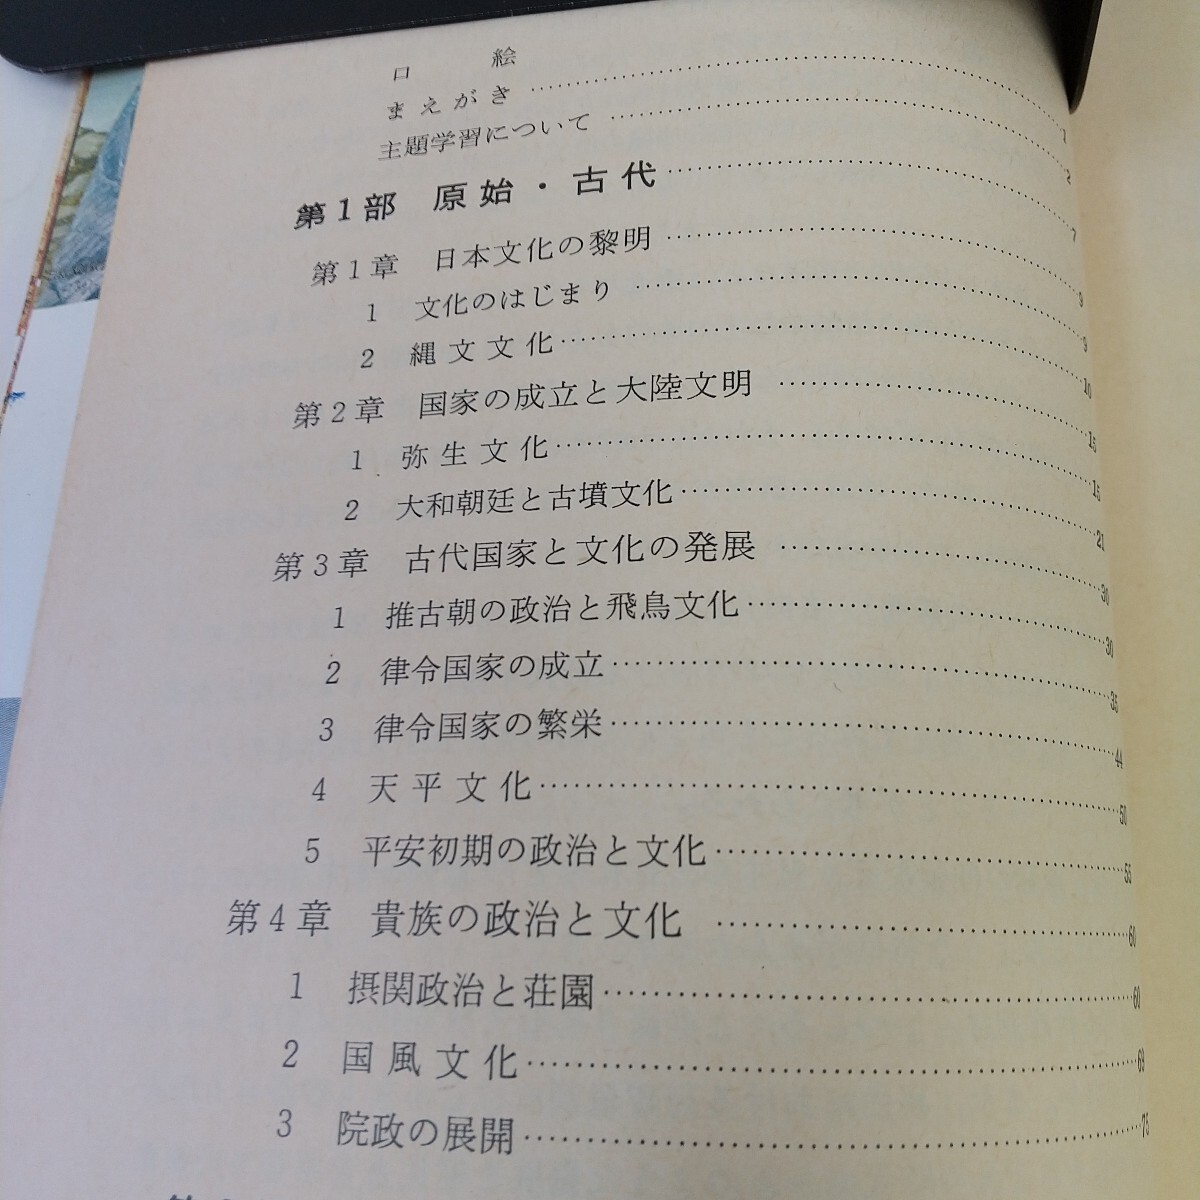 口　　絵
まえがき……1
主題学習について……2
第1部　原始・古代……7
第1章　日本文化の黎明……9
1　文化のはじまり……9
2　縄文文化……10
第2章　国家の成立と大陸文明……15
1　弥生文化……15
2　大和朝廷と古墳文化……21
第3章　古代国家と文化の発展……30
1　推古朝の政治と飛鳥文化……30
2　律令国家の成立……35
3　律令国家の繁栄……44
4　天平文化……50
5　平安初期の政治と文化……55
第4章　貴族の政治と文化……60
1　摂関政治と荘園……60
2　国風文化……69
3　院政の展開……75